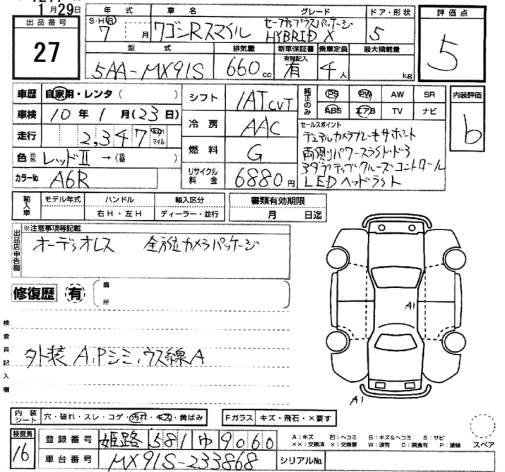 1月29日
出品番号
27
年式
車名
グレード
ドア・形状
S・H・R
7
月
ワゴンRスマイル
セーフティプラスパッケージ
HYBRID X
5
型式
排気量
新車保証書
乗車定員
最大積載量
有効記入
5AA-MX91S
660cc
有
4人
kg
評価点
5
内装評価
b
車歴
自家用・レンタ( )
車検
10年1月(23日)
走行
2,347
マイル
色
レッドⅡ→( )
カラーNo
A6R
シフト
IAT CVT
冷房
AAC
燃料
G
リサイクル料金
6880円
純正のみ
PS
PW
AW
SR
ABS
エアB
TV
ナビ
セールスポイント
デュアルカメラブレーキサポート
両側パワースライドドア
アダプティブクルーズコントロール
LEDヘッドライト
輸入車
モデル年式
ハンドル
輸入区分
右H・左H
ディーラー・並行
書類有効期限
月 日迄
出品店申告欄
※注意事項等記載
オーディオレス 全方位カメラパッケージ
修復歴
有
箇所
検査員記入欄
外装 A,Pシミ,ウス線A
A1
A1
内装シート
穴・破れ・スレ・コゲ・汚れ・キズ・黄ばみ
Fガラス
キズ・飛石・×要す
A:キズ
U:ヘコミ
B:キズ&ヘコミ
S:サビ
XX:交換済
X:交換要
W:波有
C:腐食有
P:塗褪
スペア
検査員
16
登録番号
姫路 581 ゆ 9060
車台番号
MX91S-233868
シリアルNo.